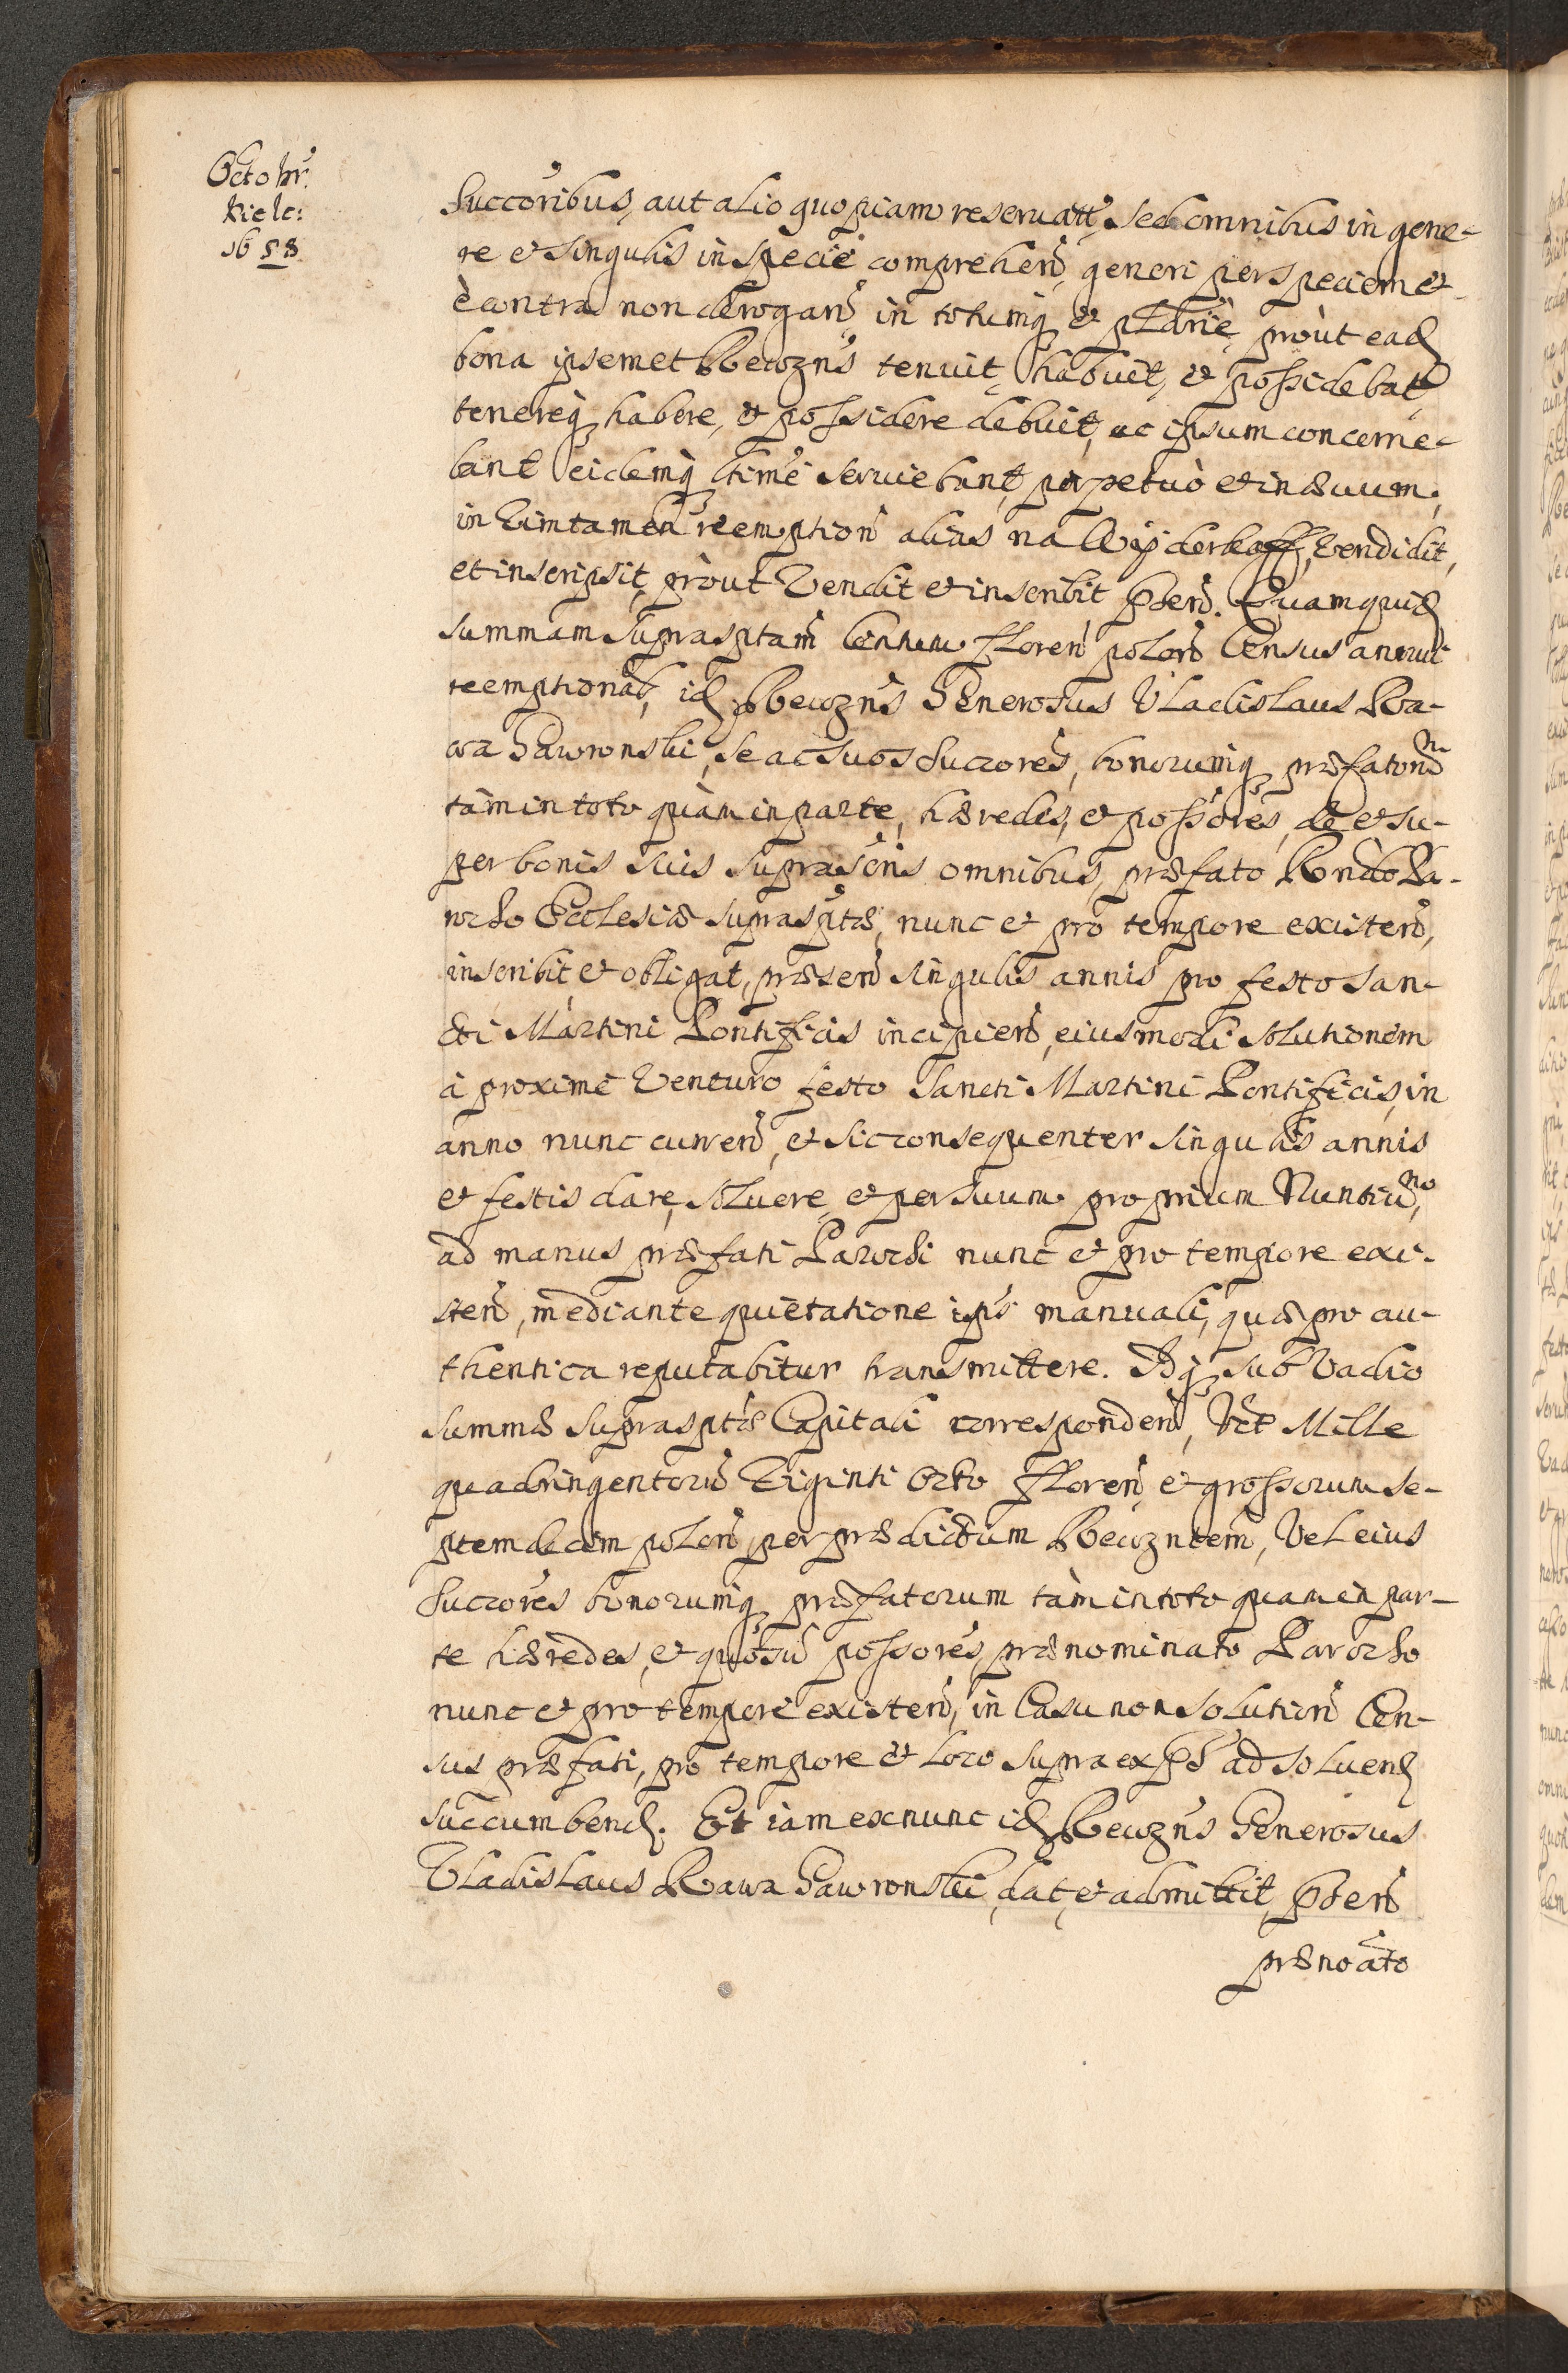 Octobr̃.
Kielc:
1658
Succoribus, aut alio quopiam reseruatt, sed omnibus in gene-
re et singulis in specie comprehen̄, generi per speciem et
è contra non derogan̄, in totumq; et pldrie, proùt ead̄
bona ipsemet Recozn̄s tenuit, habuit, et possidebat,
tenereq; habere, et possidere debuit, ac ipsum concerne-
bant eidemq; ltime seruiebant, perpetuò et in æuum,
in Vim tamen reemption̄ alias na Wyderkaff, Vendidit,
et inscripsit, pròut Vendit et inscribit p̄sen̄. Quamquid̄
summam supraspt̃am Centum floren̄ polon̄ Census annui
reemptional, id̄ Recozn̄s Generosus Vladislaus Ra-
wa Gawronski, se ac suos Succores, bonorumq; præfaton̄
tàm in toto quàm in parte, hæredes, et possores, de et su-
per bonis suis suprascr̄is omnibus, præfato Rondo Pa-
rocho Ecclesiæ supraspt̃æ, nunc et pro tempore existen̄,
inscribit et obligat, præsen̄ singulis annis pro festo San-
cti Martini Pontificis incipien̄, eiusmodi solutionem
à proximè Venturo festo Sancti Martini Pontificis, in
anno nunc curren̄, et sic consequenter singulis annis
et festis dare, soluere, et per suum proprium Nuntiu,m
ad manus præfati Parochi nunc et pro tempore exi-
sten̄, mediante quietatione ip̃s manuali, quæ pro au-
thentica reputabitur transmittere. Idq; sub Vadio
summæ supraspt̃æ Capitali corresponden̄, Vt Mille
quadringentorū Viginti Octo floren̄ et grossorum se-
ptemdecim polon̄, per prædictum Recozntem, Vel eius
Succores bonorumq; præfatorum tàm in toto quam in par-
te hæredes, et quosū possores, prænominato Parocho
nunc et pro tempore existen̄, in Casu non solution̄ Cen-
sus præfati, pro tempore et loco supraexps̄ ad soluend̄
succumbend̄. Et iam exnunc id̄ Recozn̄s Generosus
Vladislaus Rawa Gawronski, dat, et admittit, p̄sen̄
prænoãto